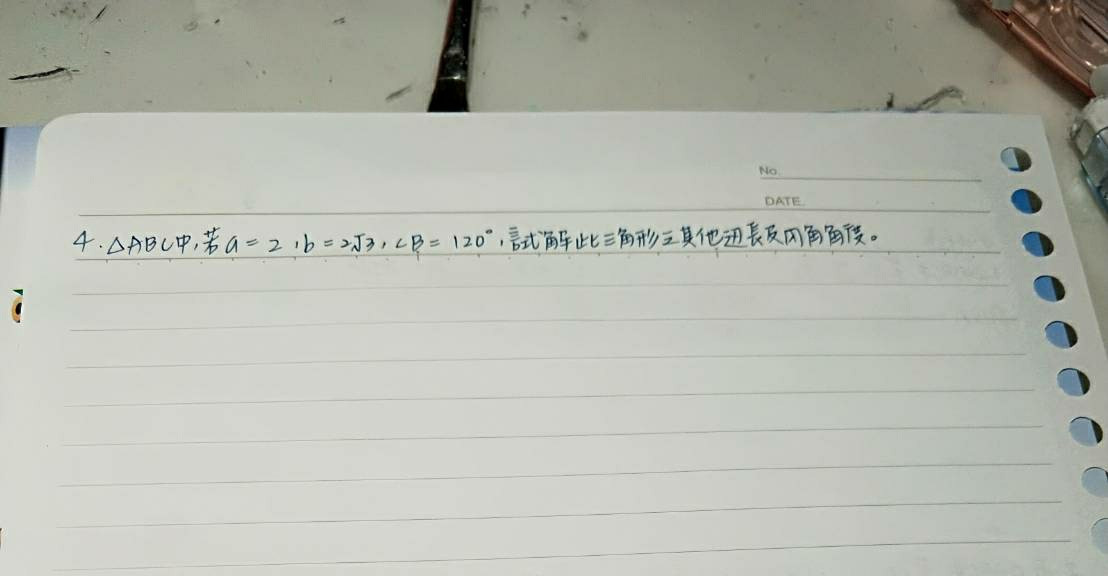 No.
DATE.
4. △ABC中,若a=2,b=2√3,∠B=120°,試解此三角形之其他边長及內角角度。